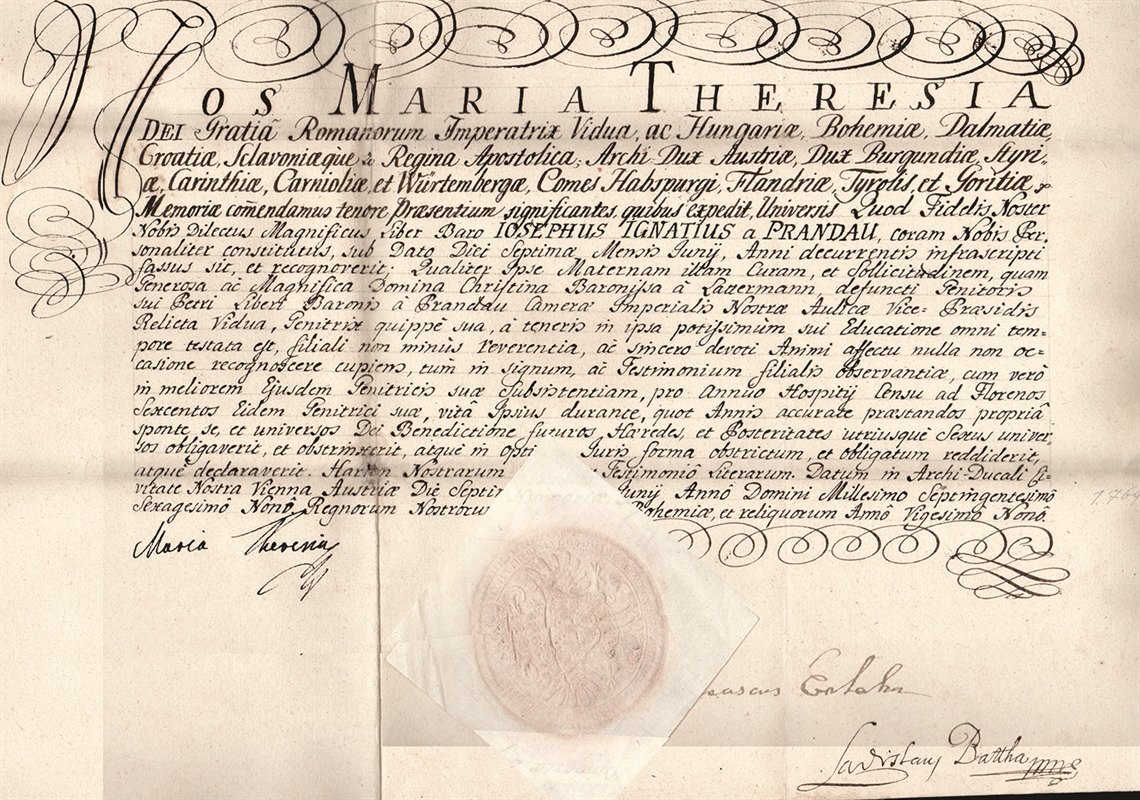 NOS MARIA THERESIA
DEI Gratiâ Romanorum Imperatrix Vidua, ac Hungariæ, Bohemiæ, Dalmatiæ,
Croatiæ, Sclavoniæque &c. Regina Apostolica, Archi-Dux Austriæ, Dux Burgundiæ, Styri-
æ, Carinthiæ, Carnioliæ, et Würtembergæ, Comes Habspurgi, Flandriæ, Tyrolis, et Goritiæ &c.
Memoriæ com̃endamus tenore Præsentium significantes, quibus expedit, Universis Quod Fidelis Noster
Nobis Dilectus Magnificus Liber Baro IOSEPHUS IGNATIUS a PRANDAU, coram Nobis Per-
sonaliter constitutus, sub Dato Diei Septima Mensis Junij, Anni decurrentis infrascripti
fassus sit, et recognoverit: Qualiter Ipse Maternam illam Curam, et Sollicitudinem, quam
Generosa ac Magnifica Domina Christina Baronissa à Lazzermann, defuncti Genitoris
sui Petri Liberi Baronis à Prandau Cameræ Imperialis Nostræ Aulicæ Vice-Præsidis
Relicta Vidua, Genitrix quippè sua, à teneris in ipsa potissimùm sui Educatione omni tem-
pore testata est, filiali non minùs reverentia, ac sincero devoti Animi affectu nulla non oc-
casione recognoscere cupiens, tum in signum, ac Testimonium filialis observantiæ, cum verò
in meliorem Ejusdem Genitricis suæ Subsistentiam, pro Annuo Hospitij Censu ad Florenos
Sexcentos Eidem Genitrici suæ, vitâ Ipsius durante, quot Annis accurate præstandos propriâ
sponte, se, et universos Dei Benedictione futuros Hæredes, et Posteritates utriusquè Sexus univer-
sos obligaverit, et obstrinxerit, atquè in opti Juris forma obstrictum, et obligatum reddiderit,
atquè declaraverit. Harum Nostrarum Testimoniô Literarum. Datum in Archi-Ducali Ci-
vitate Nostra Vienna Austriæ Die Septim Junij Annô Domini Millesimo Septingentesimô
Sexagesimo Nonô, Regnorum Nostroru Bohemiæ, et reliquorum Annô Vigesimô Nonô.
Maria Theresia
Ladislaus